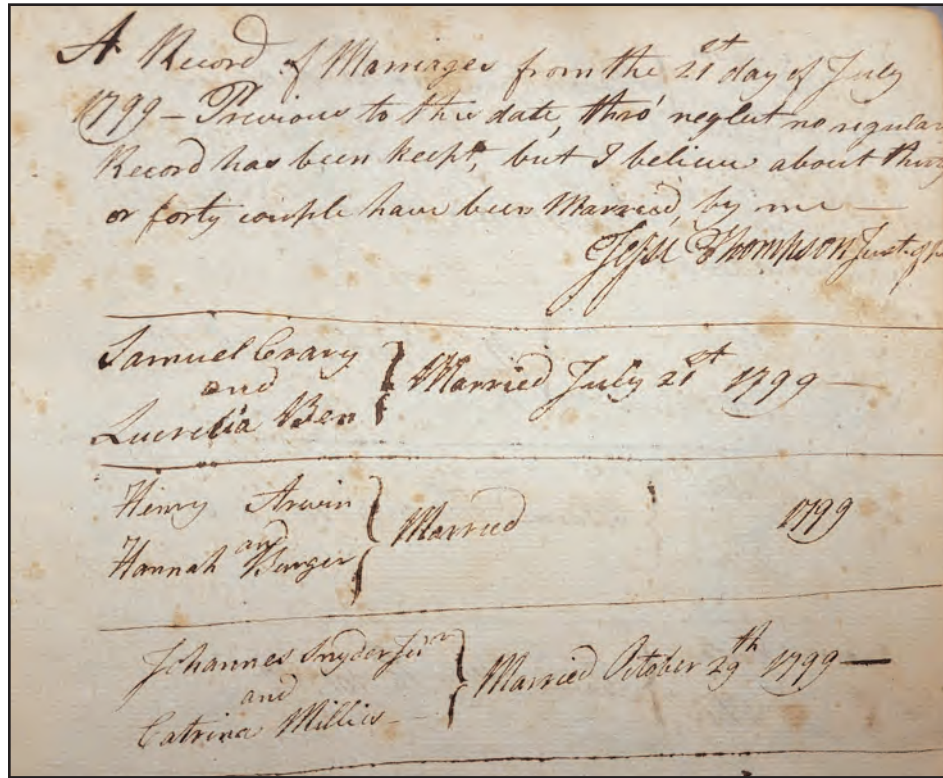 A Record of Marriages from the 21st day of July
1799 – Previous to this date, thro' neglect no regular
Record has been keept, but I believe about thirty
or forty couple have been Married, by me —
Jesse Thompson Just. of
Samuel Crary
and
Lucretia Ben
Married July 21st 1799 —
Henry
and
Hannah Burger
Married 1799
Johannes Snyder Junr
and
Catrina Millies
Married October 29th 1799 —